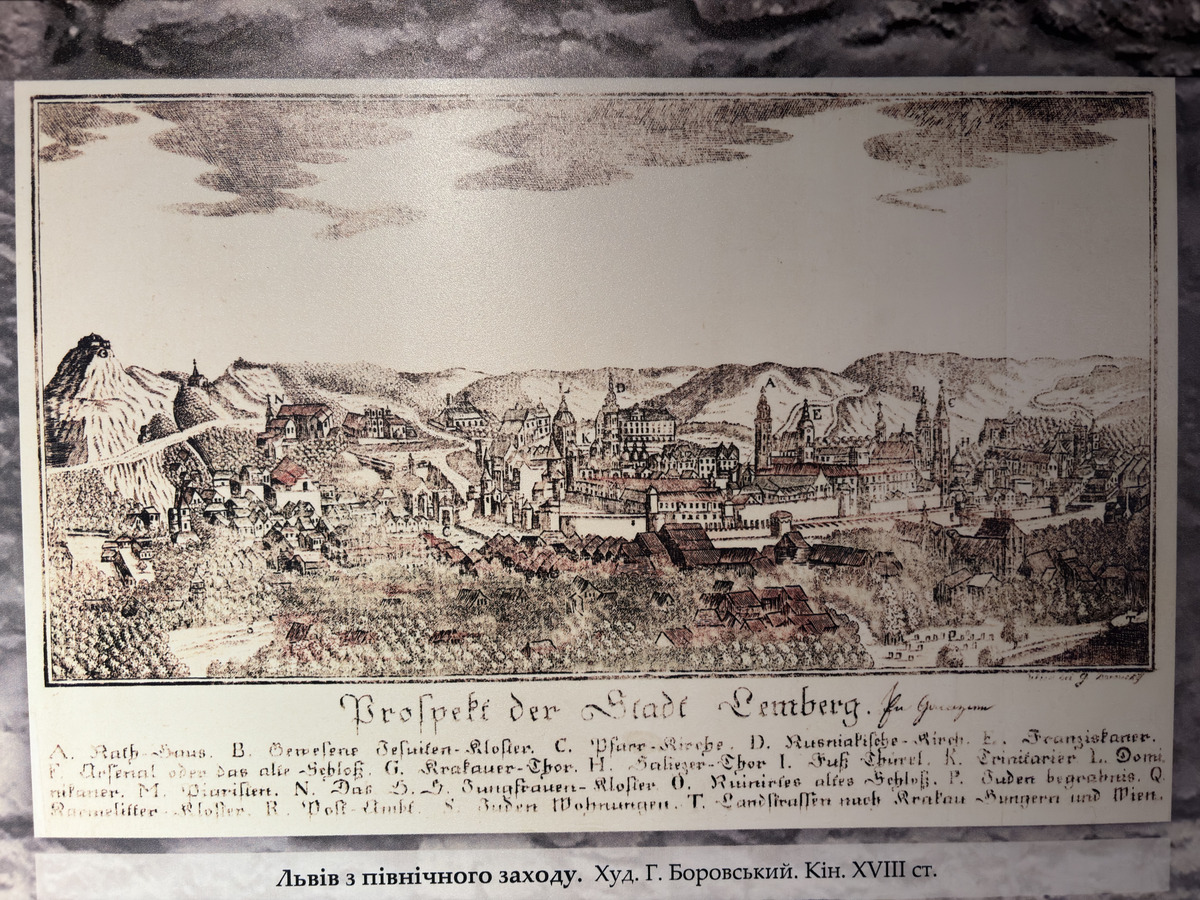 Prospekt der Stadt Lemberg.
A. Rath-Haus. B. Gewesene Jesuiten-Kloster. C. Pfarr-Kirche. D. Rusniakische-Kirch. E. Franziskaner.
F. Arsenal oder das alte Schloß. G. Krakauer-Thor. H. Haliezer-Thor I. Fuß Thürel. K. Trinitarier L. Domi,
nikaner. M. Piaristen. N. Das H. H. Jungfrauen-Kloster O. Ruinirtes altes Schloß. P. Juden begrabnis. Q.
Karmelitter-Kloster. R. Post-Ambt. S. Juden Wohnungen. T. Landstrassen nach Krakau Hungern und Wien.
Львів з північного заходу. Худ. Г. Боровський. Кін. XVIII ст.